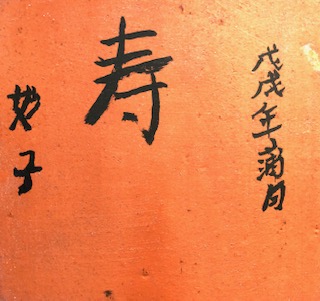 戊戌年蒲月
寿
妙子